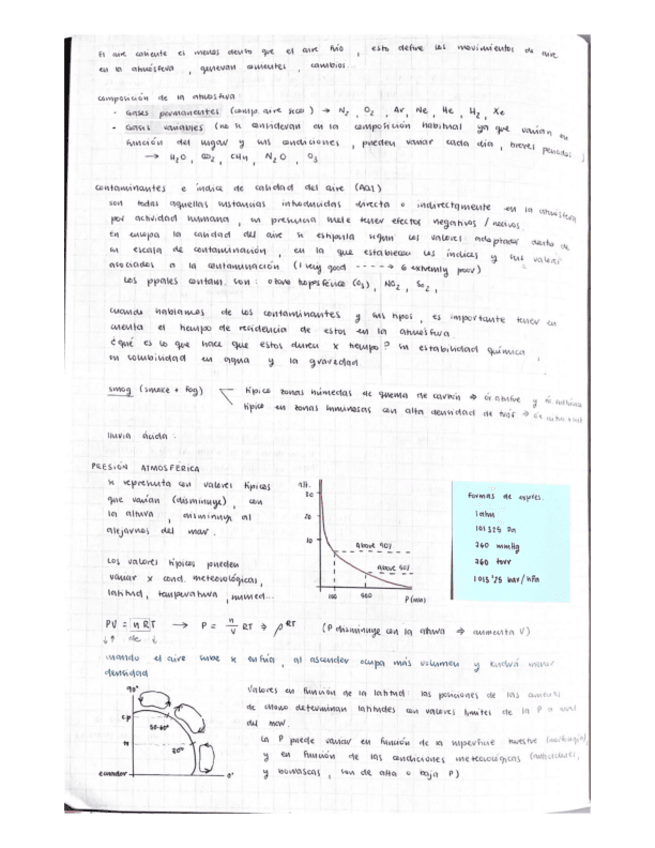 El aire caliente es menos denso que el aire frío, esto define los movimientos de aire
en la atmósfera, generan corrientes, cambios...
composición de la atmosfera:
- Gases permanentes (comp. aire seco) → N2, O2, Ar, Ne, He, H2, Xe
- Gases variables (no se consideran en la composición habitual ya que varían en
función del lugar y sus condiciones, pueden variar cada día, breves periodos...)
→ H2O, CO2, CH4, N2O, O3
contaminantes e índice de calidad del aire (AQI)
son todas aquellas sustancias introducidas directa o indirectamente en la atmósfera
por actividad humana, su presencia suele tener efectos negativos / nocivos.
En europa la calidad del aire se estipula según los valores adoptados dentro de
su escala de contaminación, en la que establecen los índices y sus valores
asociados a la contaminación (1 very good ----→ 6 extremly poor)
Los ppales contam. son: ozono troposférico (O3), NO2, SO2,
cuando hablamos de los contaminantes y sus tipos, es importante tener en
cuenta el tiempo de residencia de estos en la atmosfera.
¿qué es lo que hace que estos duren x tiempo? su estabilidad química,
su solubilidad en agua y la gravedad.
smog (smoke + fog) típico zonas húmedas de quema de carbón ⇒ y
típico en zonas luminosas con alta densidad de ⇒
lluvia ácida:
PRESIÓN ATMOSFÉRICA
se representa con valores típicos
que varían (disminuye), con
la altura, disminuye al
alejarnos del mar.
Los valores típicos pueden
variar x cond. meteorológicas,
latitud, temperatura, humed...
alt.
30
20
10
above 90%
above 50%
P (mm)
formas de
1 atm
101325 Pa
760 mmHg
760 torr
1013'25 bar/hPa
PV = nRT → P = n/V RT ⇒ ρRT (P disminuye con la altura ⇒ aumenta V)
↓↑ cte ↓
cuando el aire sube se enfría, al ascender ocupa más volumen y tendrá menor
densidad
90°
cp
50-60°
tr
30°
ecuador
0°
Valores en función de la latitud: las posiciones de las
de determinan latitudes con valores límites de la P a nivel
del mar.
La P puede variar en función de la superficie terrestre
y en función de las condiciones meteorológicas
y borrascas, son de alta o baja P)